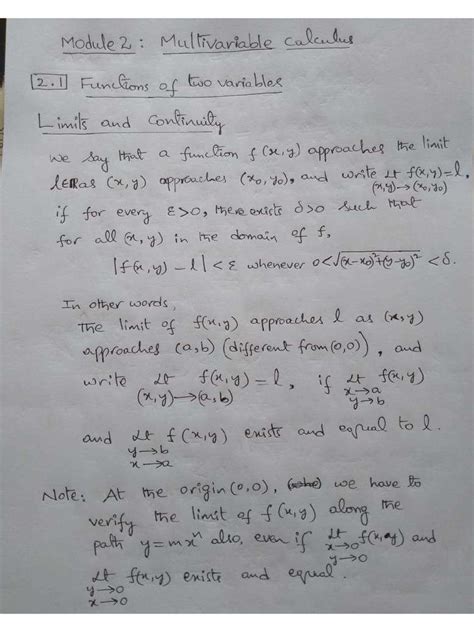 Module 2 : Multivariable calculus
2.1 Functions of two variables
Limits and Continuity
We say that a function f(x,y) approaches the limit
l∈R as (x,y) approaches (x₀,y₀), and write Lt f(x,y)=l,
(x,y)→(x₀,y₀)
if for every ε>0, there exists δ>0 such that
for all (x,y) in the domain of f,
|f(x,y) − l| < ε whenever 0<√(x−x₀)²+(y−y₀)² < δ.
In other words,
The limit of f(x,y) approaches l as (x,y)
approaches (a,b) (different from (0,0)), and
write Lt f(x,y) = l, if Lt f(x,y)
(x,y)→(a,b) x→a
y→b
and Lt f(x,y) exists and equal to l.
y→b
x→a
Note: At the origin (0,0), we have to
verify the limit of f(x,y) along the
path y=mxⁿ also, even if Lt f(x,y) and
x→0
y→0
Lt f(x,y) exists and equal.
y→0
x→0